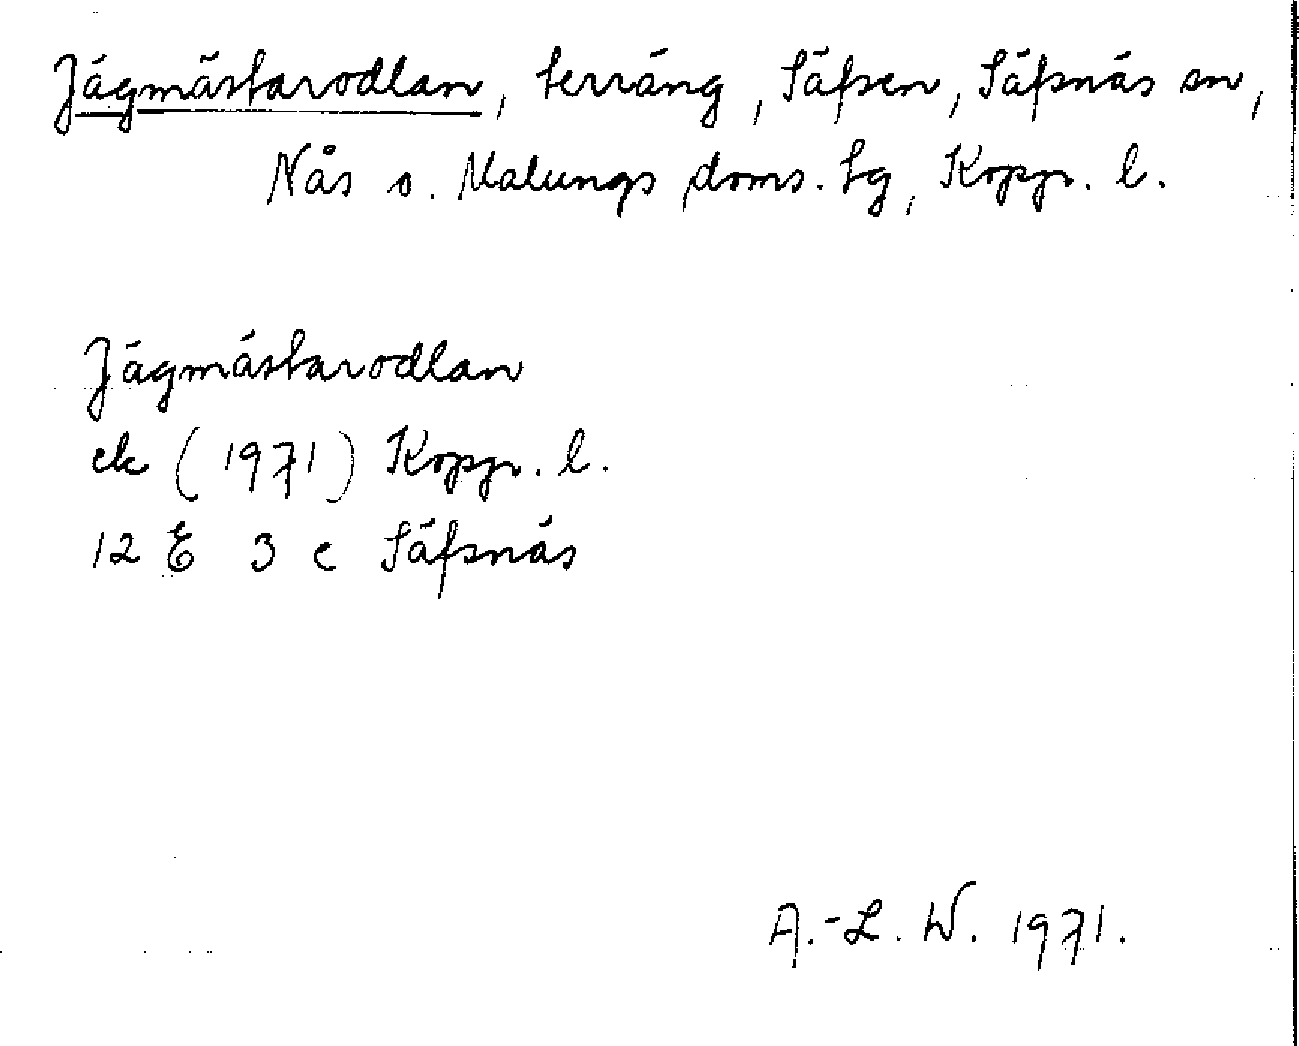 Jägmästarodlan, terräng, Säfsen, Säfsnäs sn,
Nås o. Malungs doms. tg, Kopp. l.
Jägmästarodlan
ek (1971) Kopp. l.
12 E 3 c Säfsnäs
A.-L. W. 1971.